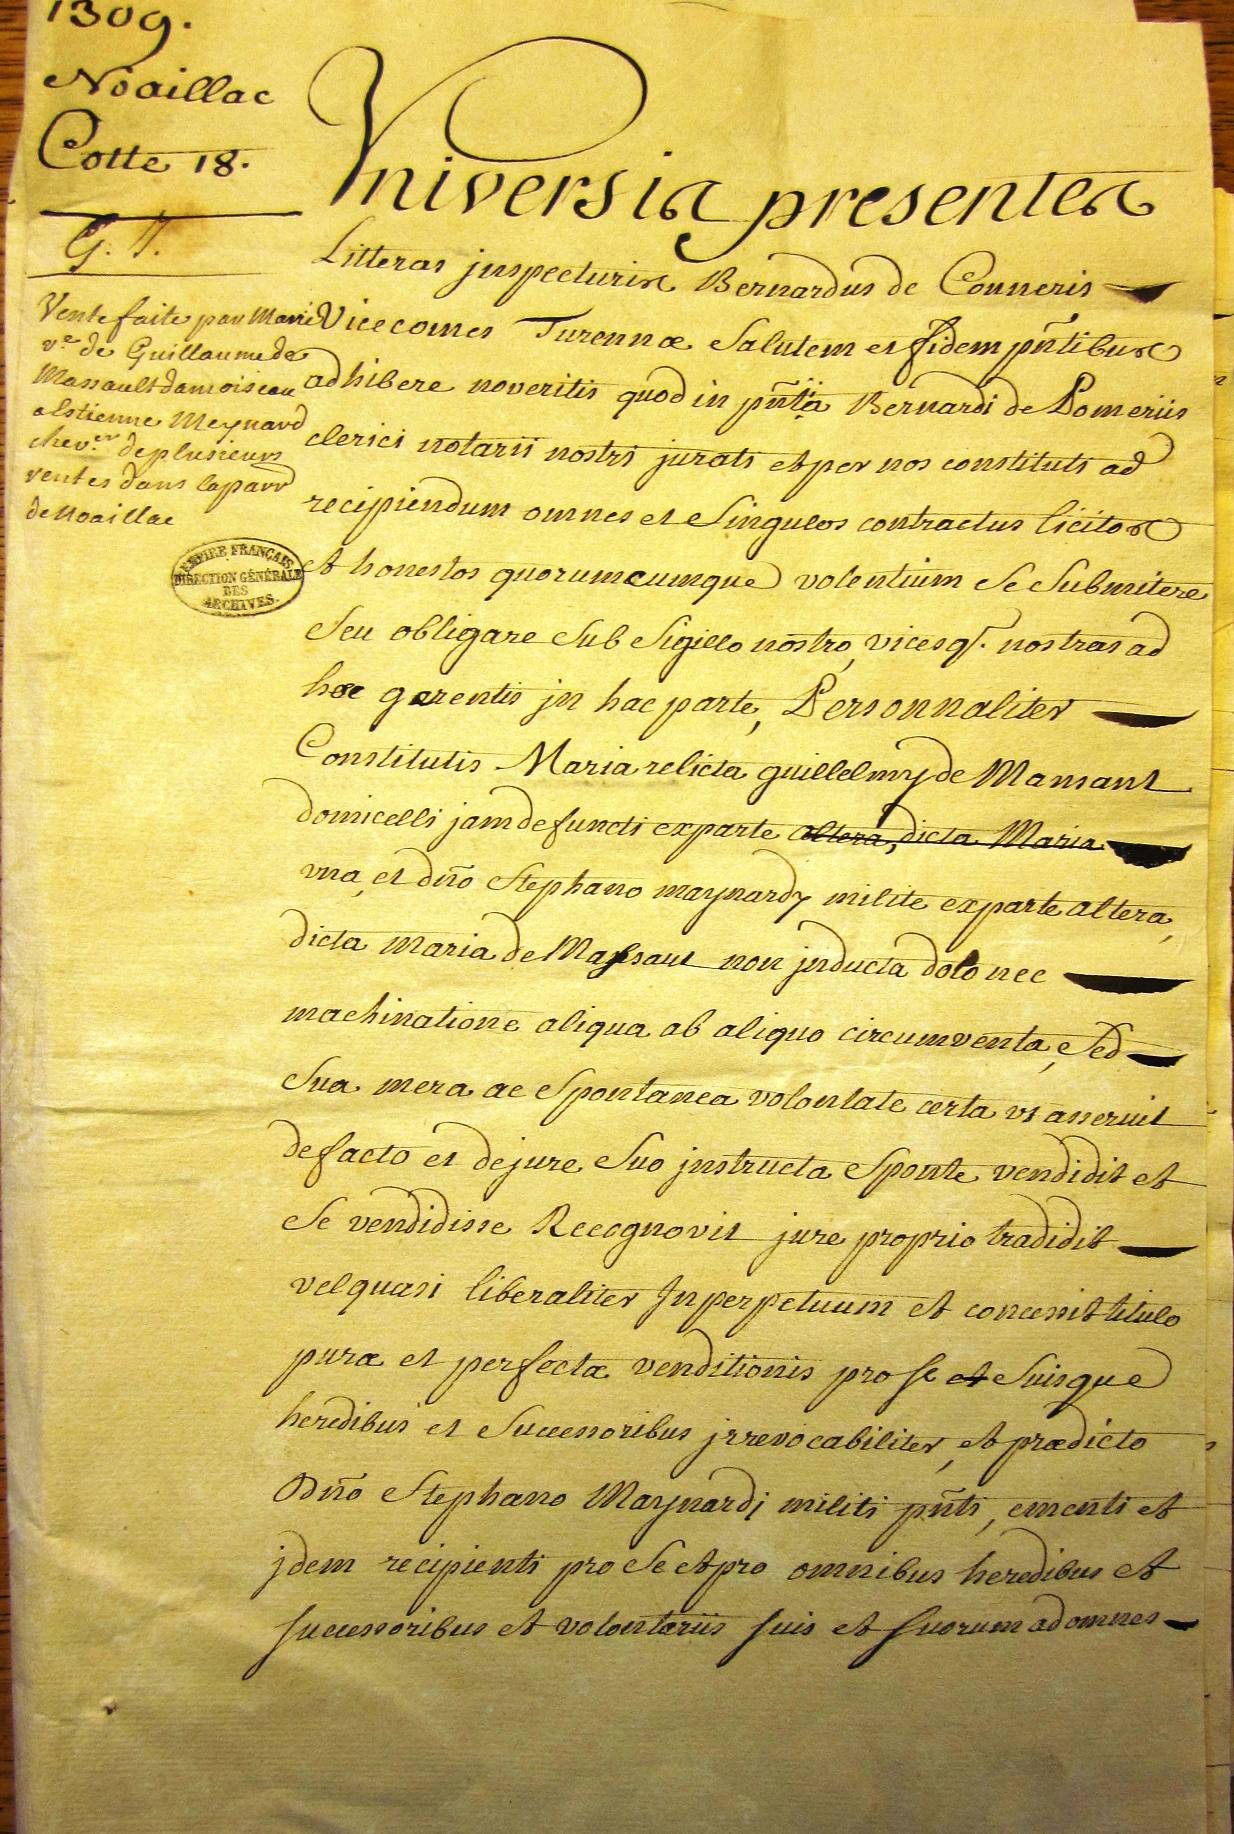 1309.
Noaillac
Cotte 18.
G. T.
Vente faite par Marie
v.e de Guillaume de
Massault damoiseau
a Estienne Meynard
chev.er de plusieurs
rentes dans la parr
de Noaillac
EMPIRE FRANÇAIS
DIRECTION GÉNÉRALE
DES
ARCHIVES.
Vniversis presentes
Litteras jnspecturis Bernardus de Conneris
Vicecomes Turennæ Salutem et fidem pñtibus
adhibere noveritis quod in pñtia Bernardi de Pomeriis
clerici notarii nostri jurati et per nos constituti ad
recipiendum omnes et Singulos contractus licitos
et honestos quorumcumque volentium Se Submitere
Seu obligare Sub Sigillo nostro, vicesq. nostras ad
hæc gerentis jn hac parte, Personnaliter
Constitutis Maria relicta guillelmy de Mansaut
domicelli jam defuncti ex parte altera, dicta Maria
vna, et dño Stephano maynardy milite ex parte altera,
dicta Maria de Massaut non jnducta dolo nec
machinatione aliqua ab aliquo circumventa, Sed
Sua mera ac Spontanea volontate certa vt asseruit
de facto et de jure Suo jnstructa Sponte vendidit et
Se vendidisse Recognovit jure proprio tradidit
vel quasi liberaliter Jn perpetuum et concessit titulo
puræ et perfectæ venditionis pro se et Suisque
heredibus et Successoribus jrrevocabiliter, et prædicto
Dño Stephano Maynardj militi pñti, ementi et
jdem recipienti pro Se et pro omnibus heredibus et
successoribus et volontariis suis et suorum ad omnes